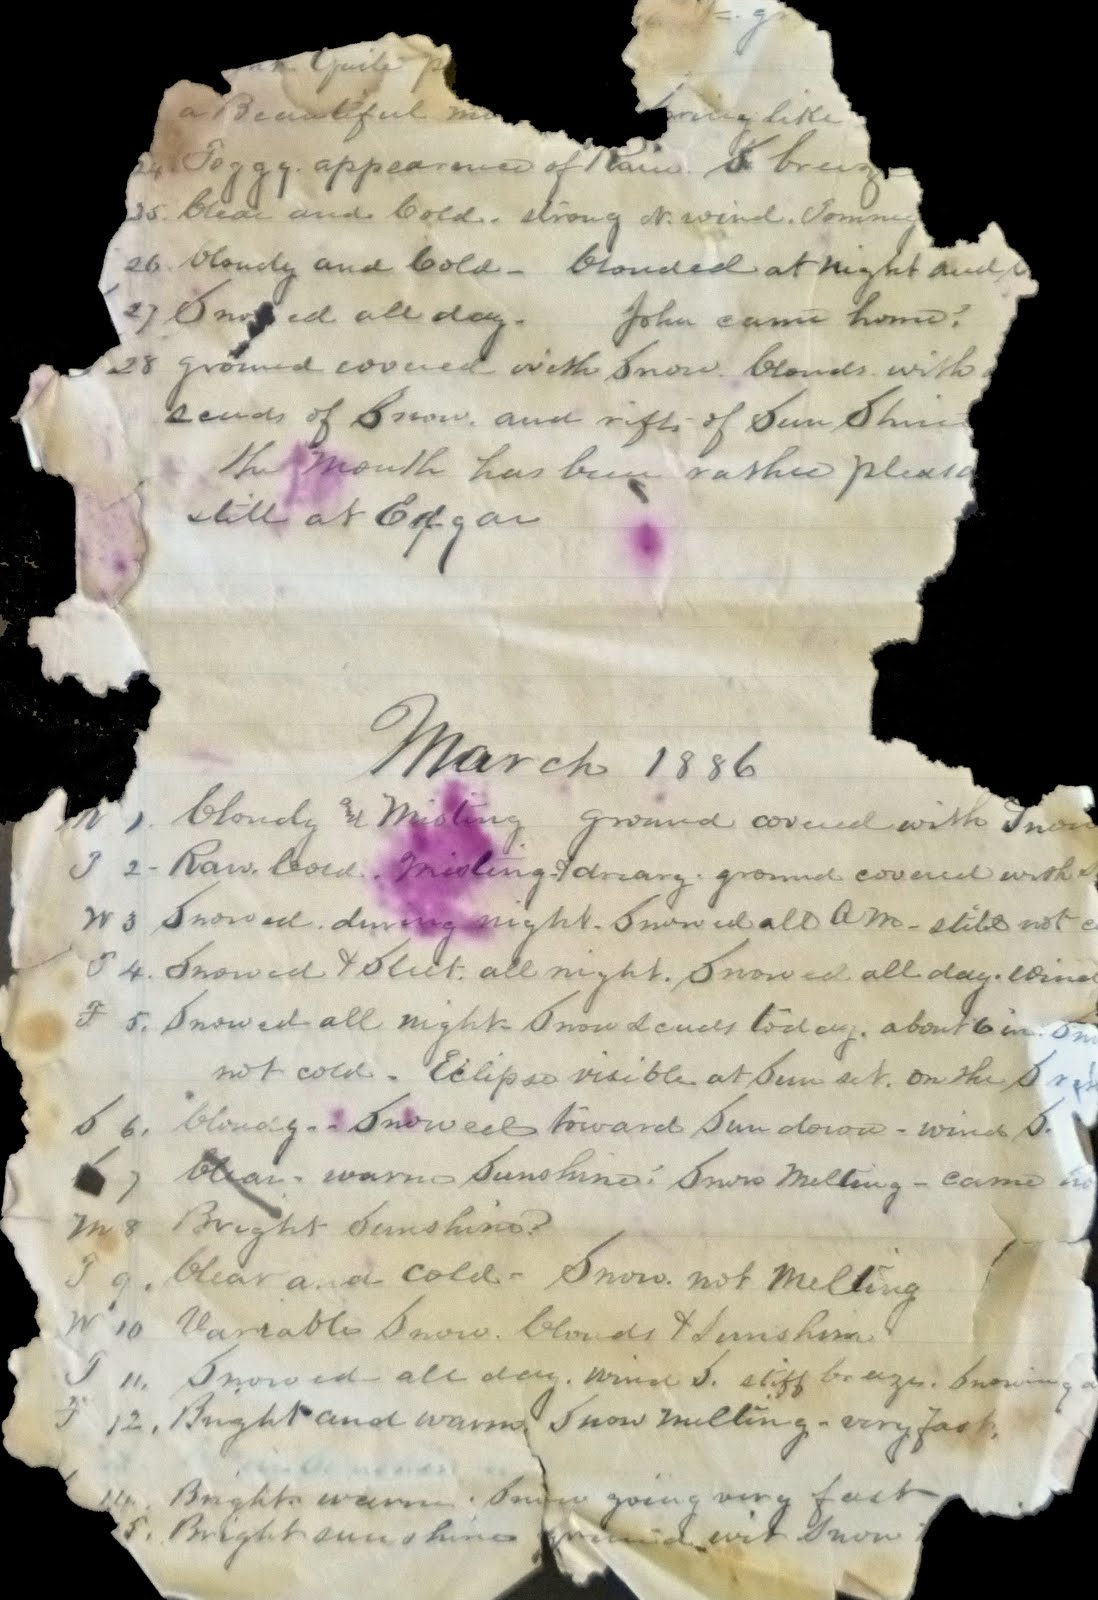 Quite
a Beautiful like
24. Foggy. appearence of Rain. S breez
25. Clear and Cold. strong N. wind. Tommy
26. Cloudy and Cold - Clouded at night and
27 Snowed all day. John came home.
28 ground covered with Snow. Clouds with
scuds of Snow. and rifts of Sun Shine
the Month has been rather pleasa
still at Edgar
March 1886
M 1. Cloudy and Misting ground covered with Snow
T 2 - Raw. Cold. Misting & dreary. ground covered with
W 3 Snowed. during night. Snowed all A M - still not
T 4. Snowed & Sleet. all night. Snowed all day. Wind
F 5. Snowed all night Snow Scuds today. about 6 in.
not cold - Eclipse visible at Sun set. on the
S 6. Cloudy - Snowed toward Sun down - wind S.
S 7 Clear - warm Sunshine. Snow Melting - came
M 8 Bright Sunshine
T 9. Clear and cold - Snow. not Melting
W 10 Variable Snow. Clouds & Sunshine
T 11. Snowed all day. wind S. stiff breeze. Snowing
F 12. Bright and warm. Snow melting - very fast.
14. Bright warm. Snow going very fast
5. Bright sunshine ground wit Snow